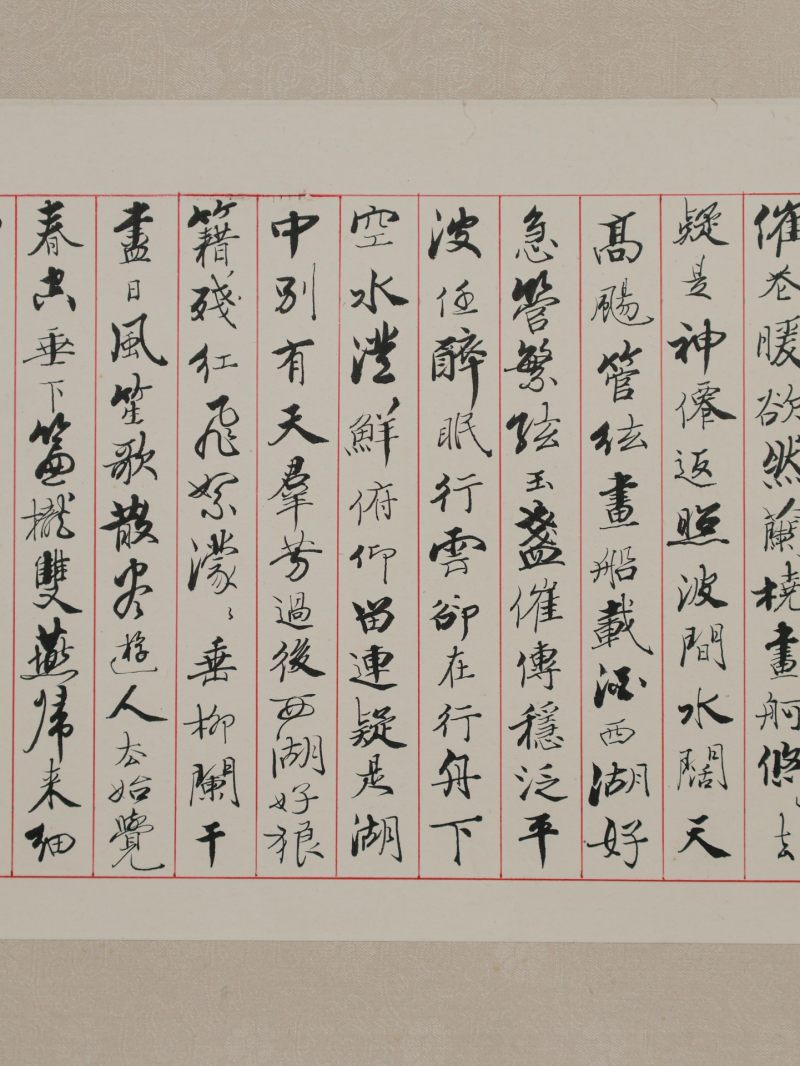 催花暖欲然蘭橈畫舸悠〻去
疑是神僊返照波間水闊天
高颺管絃畫船載酒西湖好
急管繁絃玉盞催傳穩泛平
波任醉眠行雲卻在行舟下
空水澄鮮俯仰留連疑是湖
中別有天羣芳過後西湖好狼
籍殘紅飛絮濛〻垂柳闌干
盡日風笙歌散尽遊人去始覺
春空垂下簾櫳雙燕歸来細